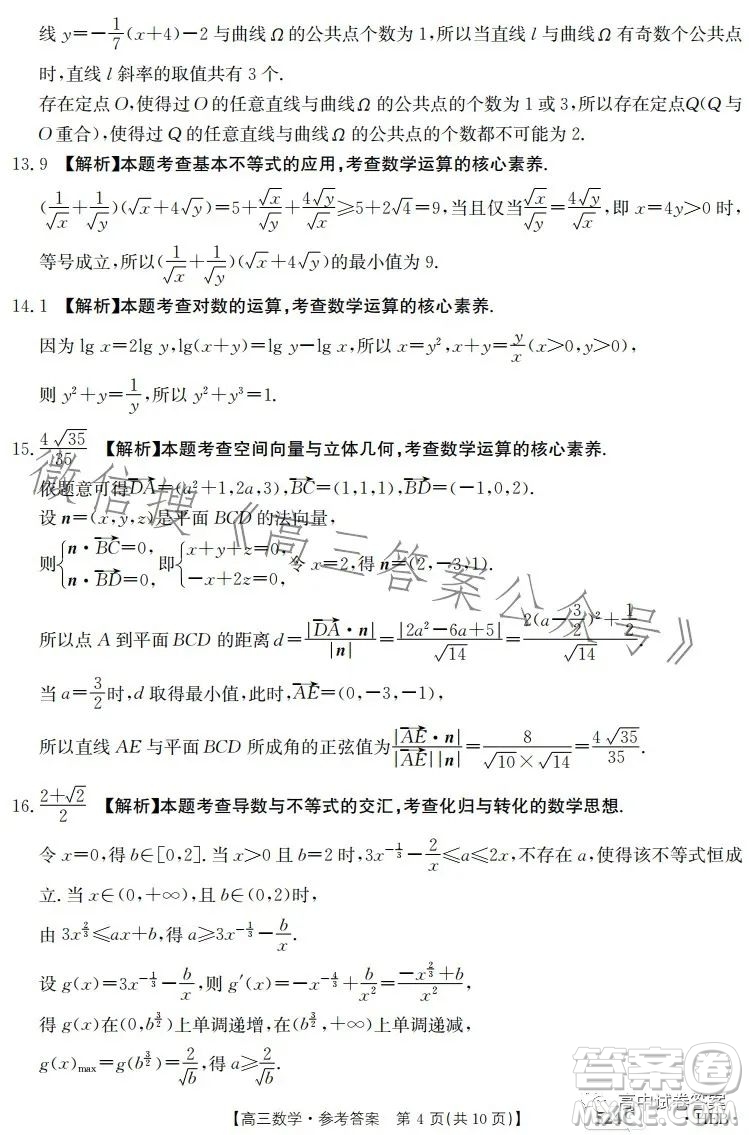 线 y=-1/7(x+4)-2 与曲线 Ω 的公共点个数为 1,所以当直线 l 与曲线 Ω 有奇数个公共点
时,直线 l 斜率的取值共有 3 个.
存在定点 O,使得过 O 的任意直线与曲线 Ω 的公共点的个数为 1 或 3,所以存在定点Q(Q 与
O 重合),使得过 Q 的任意直线与曲线 Ω 的公共点的个数都不可能为 2.
13.9 【解析】本题考查基本不等式的应用,考查数学运算的核心素养.
(1/√x+1/√y)(√x+4√y)=5+√x/√y+4√y/√x≥5+2√4=9,当且仅当√x/√y=4√y/√x,即 x=4y>0 时,
等号成立,所以(1/√x+1/√y)(√x+4√y)的最小值为 9.
14.1 【解析】本题考查对数的运算,考查数学运算的核心素养.
因为 lg x=2lg y,lg(x+y)=lg y-lg x,所以 x=y²,x+y=y/x(x>0,y>0),
则 y²+y=1/y,所以 y²+y³=1.
15.4√35/35 【解析】本题考查空间向量与立体几何,考查数学运算的核心素养.
依题意可得DA→=(a²+1,2a,3),BC→=(1,1,1),BD→=(-1,0,2).
设 n=(x,y,z)是平面 BCD 的法向量,
则{n·BC→=0, n·BD→=0, 即{x+y+z=0, -x+2z=0, 令 x=2,得 n=(2,-3,1).
所以点 A 到平面 BCD 的距离 d=|DA→·n|/|n|=|2a²-6a+5|/√14=2(a-3/2)²+1/2/√14.
当 a=3/2时,d 取得最小值,此时,AE→=(0,-3,-1),
所以直线 AE 与平面 BCD 所成角的正弦值为|AE→·n|/|AE→||n|=8/√10×√14=4√35/35.
16.2+√2/2 【解析】本题考查导数与不等式的交汇,考查化归与转化的数学思想.
令 x=0,得 b∈[0,2].当 x>0 且 b=2 时,3x^(-1/3)-2/x≤a≤2x,不存在 a,使得该不等式恒成
立.当 x∈(0,+∞),且 b∈(0,2)时,
由 3x^(2/3)≤ax+b,得 a≥3x^(-1/3)-b/x.
设 g(x)=3x^(-1/3)-b/x,则 g′(x)=-x^(-4/3)+b/x²=-x^(2/3)+b/x²,
得 g(x)在(0,b^(3/2))上单调递增,在(b^(3/2),+∞)上单调递减,
g(x)max=g(b^(3/2))=2/√b,得 a≥2/√b.
【高三数学·参考答案 第 4 页(共 10 页)】
·HEB·
微信搜《高三答案公众号》
高中试卷答案
答案圈